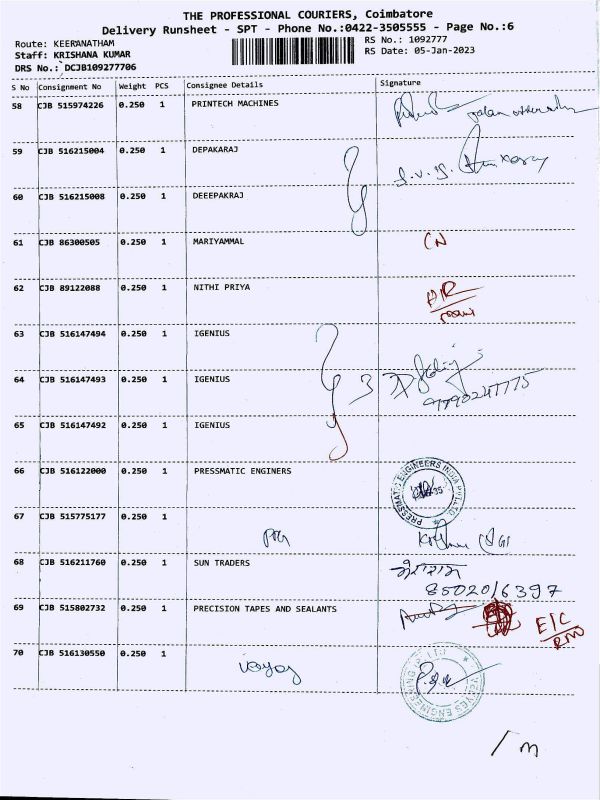 THE PROFESSIONAL COURIERS, Coimbatore
Delivery Runsheet - SPT - Phone No.:0422-3505555 - Page No.:6
Route: KEERANATHAM RS No.: 1092777
Staff: KRISHANA KUMAR RS Date: 05-Jan-2023
DRS No.: DCJB109277706
S No Consignment No Weight PCS Consignee Details Signature
58 CJB 515974226 0.250 1 PRINTECH MACHINES
59 CJB 516215004 0.250 1 DEPAKARAJ
60 CJB 516215008 0.250 1 DEEEPAKRAJ
61 CJB 86300505 0.250 1 MARIYAMMAL CN
62 CJB 89122088 0.250 1 NITHI PRIYA
63 CJB 516147494 0.250 1 IGENIUS
64 CJB 516147493 0.250 1 IGENIUS 3
65 CJB 516147492 0.250 1 IGENIUS
66 CJB 516122000 0.250 1 PRESSMATIC ENGINERS
67 CJB 515775177 0.250 1
68 CJB 516211760 0.250 1 SUN TRADERS
8502016397
69 CJB 515802732 0.250 1 PRECISION TAPES AND SEALANTS
E/C
70 CJB 516130550 0.250 1